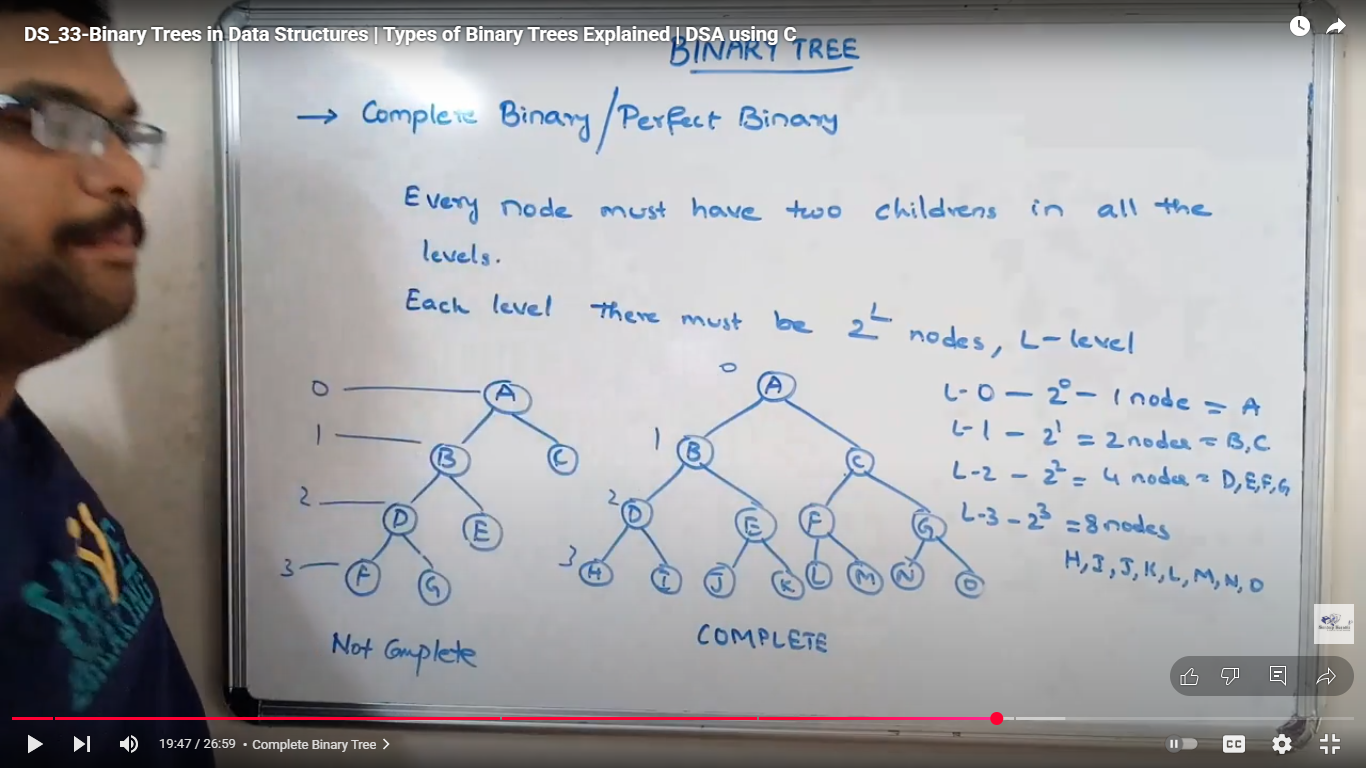 DS_33-Binary Trees in Data Structures | Types of Binary Trees Explained | DSA using C
BINARY TREE
→ Complete Binary/Perfect Binary
Every node must have two childrens in all the
levels.
Each level there must be 2^L nodes, L-level
0 A
1 B C
2 D E
3 F G
Not Complete
0 A
1 B C
2 D E F G
3 H I J K L M N O
COMPLETE
L-0 — 2^0 - 1 node = A
L-1 - 2^1 = 2 nodes = B,C
L-2 - 2^2 = 4 nodes = D,E,F,G
L-3 - 2^3 = 8 nodes
H,I,J,K,L,M,N,O
19:47 / 26:59 • Complete Binary Tree >
CC